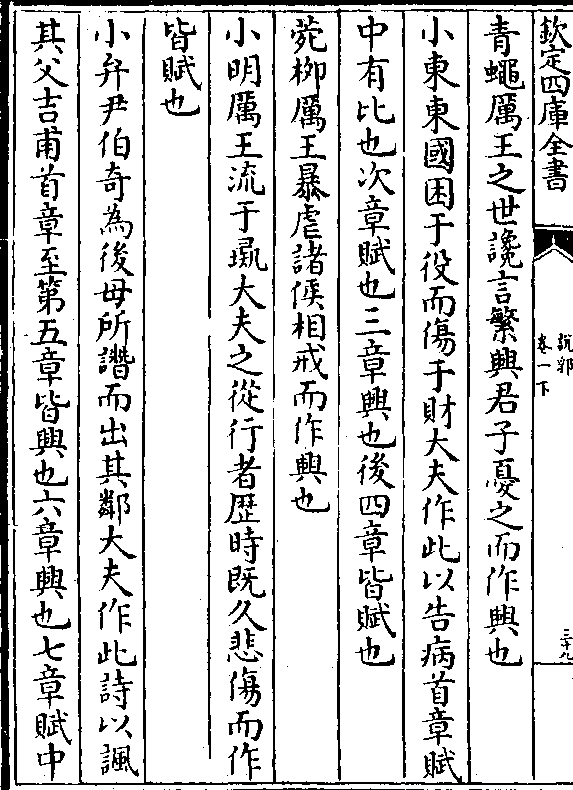 欽定四庫全書
說郛
卷一下
三十九
青蠅厲王之世讒言繁興君子憂之而作興也
小東東國困于役而傷于財大夫作此以告病首章賦
中有比也次章賦也三章興也後四章皆賦也
菀柳厲王暴虐諸侯相戒而作興也
小明厲王流于彘大夫之從行者歷時既久悲傷而作
皆賦也
小弁尹伯奇為後母所譖而出其鄰大夫作此詩以諷
其父吉甫首章至第五章皆興也六章興也七章賦中